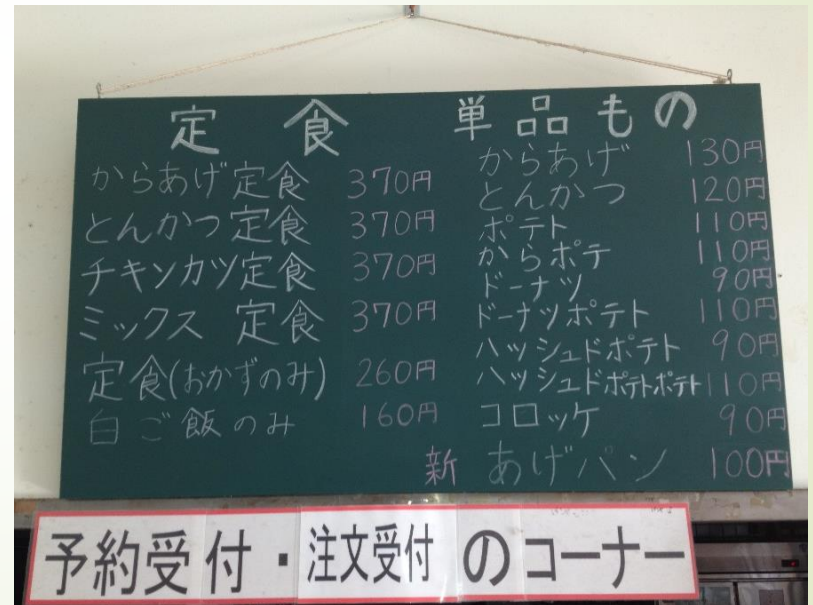 定食
からあげ定食 370円
とんかつ定食 370円
チキンカツ定食 370円
ミックス 定食 370円
定食(おかずのみ) 260円
白ご飯のみ 160円
単品もの
からあげ 130円
とんかつ 120円
ポテト 110円
からポテ 110円
ドーナツ 90円
ドーナツポテト 110円
ハッシュドポテト 90円
ハッシュドポテトポテト 110円
コロッケ 90円
新 あげパン 100円
予約受付・注文受付のコーナー